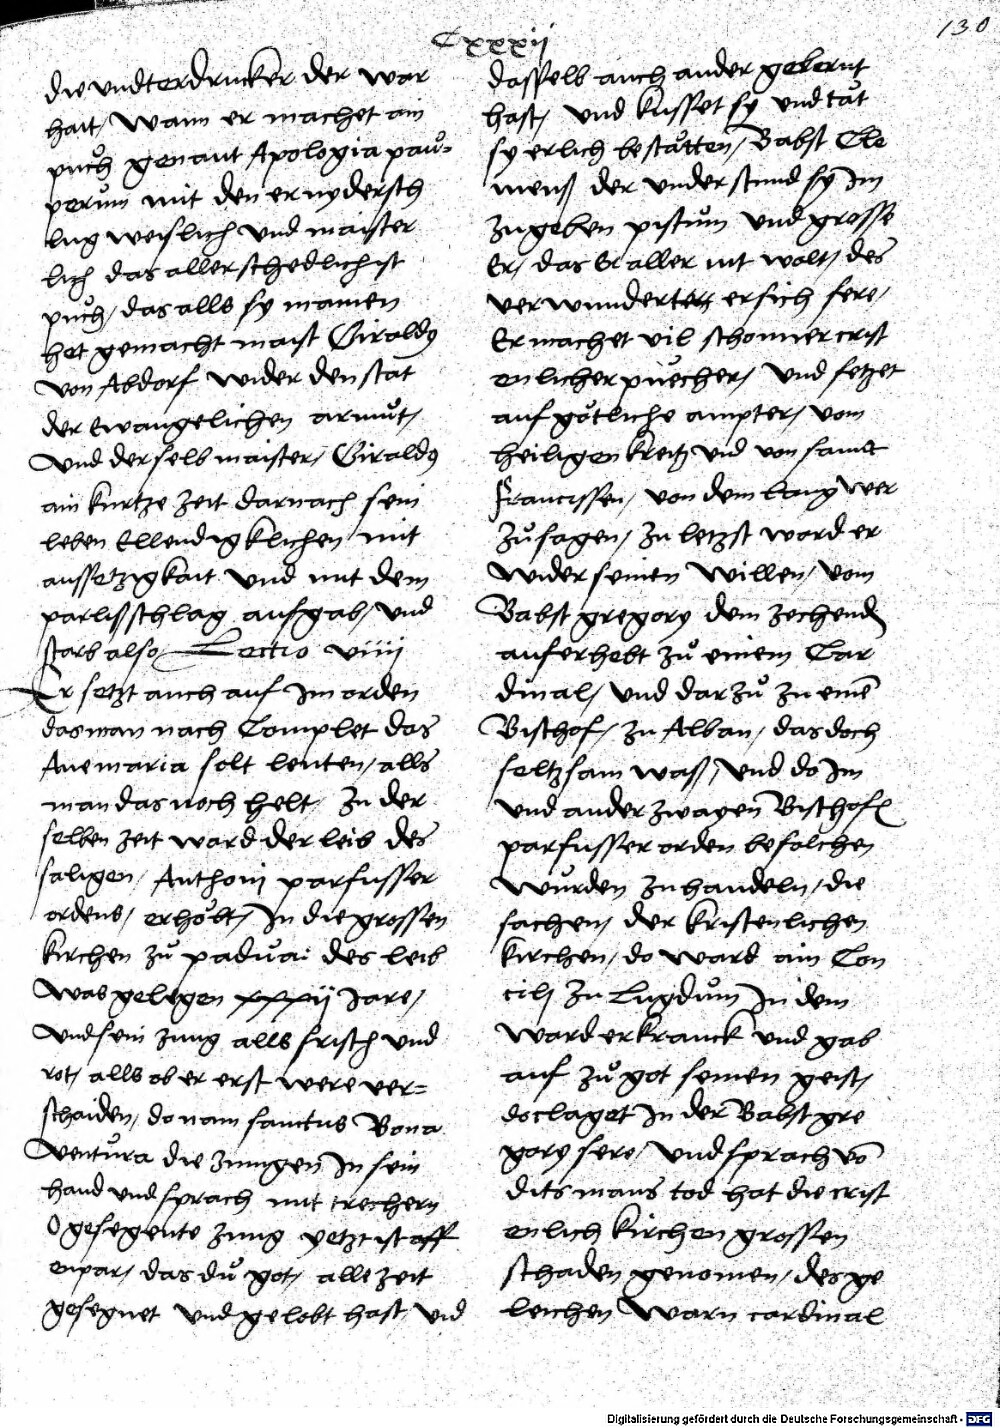 Cxxxij
130
die vndterdrucker der war
hait / Wann er machet ain
puͦch genant Apologia pau-
perum mit den er nydersch
lug weislich vnd maister
lich das aller schedlichist
puͦch / das alls sy mainen
het gemacht maist Giraldus
von Abdorf wider den stat
der Ewangelichen armuͦt /
vnd der selb maister / Giraldus
ain kurtze zeit darnach sein
leben Ellendigklichen mit
aussetzigkait vnd mit dem
parlisschlag aufgab / vnd
starb also / Lectio viiii
Er setzt auch auf Im orden
das man nach Complet das
Auemaria solt leuten / alls
man das noch helt / Zu der
selben zeit ward der leib des
saligen / Anthonij parfusser
ordens / erhoͤbt / In die grossen
kirchen zuͦ paduai des leib
was gelegen xxxij Jare /
vnd sein zung alls frisch vnd
rot / alls ob er erst were ver-
schaiden / do nam sanctus Bona
ventura die zungen In sein
hand vnd sprach mit trechern
O gesegente zung yetzt ist off
enpar / das duͦ got / alle zeit
gesegnet vnd gelobt hast / vnd
dasselb auch ander gelernt
hast / vnd kusset sy vnd taͤt
sy erlich bestaͤtten / Babst Cle
menß der vnderstund sy Im
zu geben pistum vnd grosse
Er / das Er aller nit wolt / des
verwundert er sich sere /
Er machet vil schonner crist
enlicher puͤecher / vnd setzet
auf goͤtliche ampter / vom
heiligen kreitz vnd von sannt
Francissen / von dem lang wer
zuͦ sagen / zu letzst ward er
wider seinen willen / vom
Babst gregory dem zechend
auf erhebt zuͦ einem Car
dinal / vnd dar zuͦ zu einē
Bischof / zu Alban / das doch
seltzsam waß / vnd do Im
vnd ander zwayen Bischofen
parfusser orden befolchen
wurden zu handeln / die
sachen / der kristenlichen
kirchen / do ward ain Con
cilj zu Lugduͦm In dem
ward er kranck vnd gab
auf zuͦ got seinen geist /
do claget In der Babst gre
gory sere / vnd sprach vō
dits mans tod hat die crist
enlich kirchen grossen
schaden genomen / des ge
leichen warn cardinal
Digitalisierung gefördert durch die Deutsche Forschungsgemeinschaft - DFG